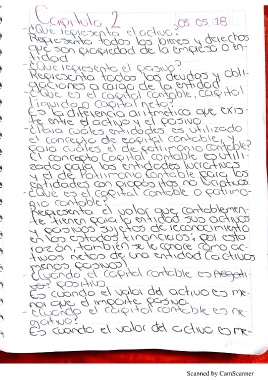 Capítulo 2
05 05 18
-¿Que representa el activo?
Representa todos los bienes y derechos
que son propiedad de la empresa o en-
tidad
-¿Que representa el pasivo?
Representa todas las deudas y obli-
gaciones a cargo de la entidad
-¿Que es el capital contable, capital
liquido o capital neto?
Es la diferencia aritmetica que exis-
te entre el activo y el pasivo
-¿Para cuales entidades es utilizado
el concepto de capital contable, y
para cuales el de patrimonio contable?
El concepto capital contable es utili-
zado para las entidades lucrativas
y el de patrimonio contable para las
entidades con propositos no lucrativos
-¿Que es el capital contable o patrimo-
nio contable?
Representa el valor que contablemen-
te tienen para la entidad sus activos
y pasivos sujetos de reconocimiento
en los estados financieros; por esta
razón, también se le conoce como ac-
tivos netos de una entidad (activos
menos pasivos)
-¿Cuando el capital contable es
positivo
Es cuando el valor del activo es ma-
yor que el importe pasivo.
-¿Cuando el capital contable es ne-
gativo?
Es cuando el valor del activo es me-
Scanned by CamScanner